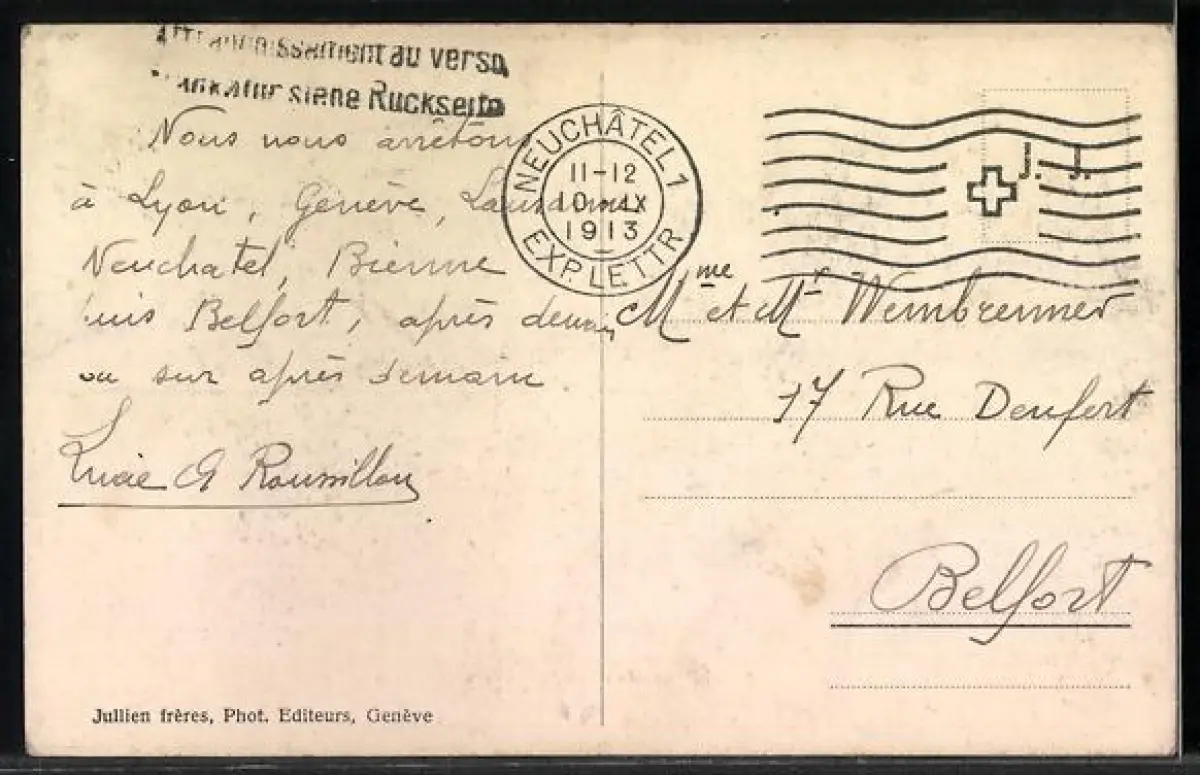 Affranchissement au verso
Frankatur siehe Rückseite
Nous nous arrêtons
à Lyon, Genève, Lausanne,
Neuchatel, Bienne
puis Belfort, après demain
ou sur après demain.
Lucie Roussillon
NEUCHÂTEL 1
11-12
10. IX
1913
EXP. LETTR.
J. J.
Mme et Mr Weinbrenner
17 Rue Denfert
Belfort
Jullien frères, Phot. Editeurs, Genève